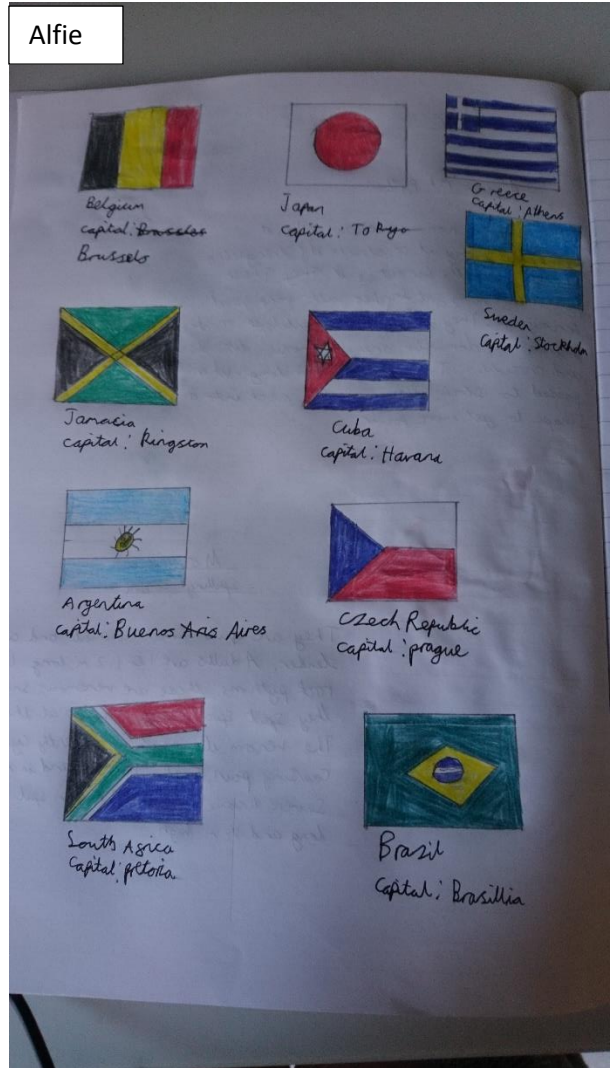 Alfie
Belgium
capital: Brussles
Brussels
Japan
capital: Tokyo
Greece
capital: Athens
Sweden
capital: Stockholm
Jamacia
capital: Kingston
Cuba
capital: Havana
Argentina
capital: Buenos Aris Aires
Czech Republic
capital: prague
South Africa
capital: pretoria
Brazil
capital: Brasillia